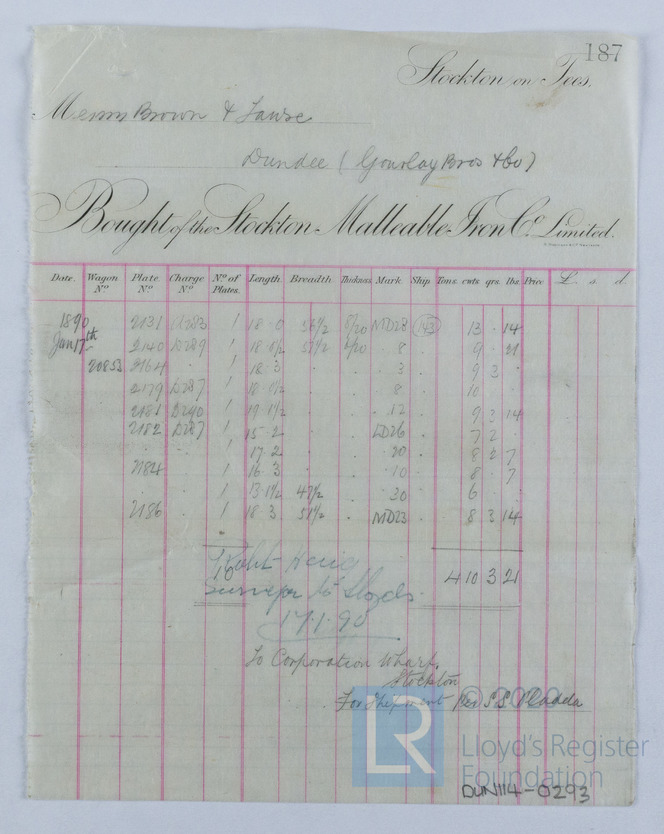 187
Stockton on Tees,
Messrs Brown & Tawse
Dundee (Gourlay Bros & Co)
Bought of the Stockton Malleable Iron Co. Limited.
Date. Wagon No. Plate No. Charge No. No. of Plates. Length. Breadth. Thickness. Mark. Ship. Tons. cwts. qrs. lbs. Price £ s d.
1890 2131 D283 1 18 0 8/20 MD28 143 13 . 14
Jan 17th 2140 D289 1 51½ 8 9 . 21
20853 2164 . 1 18 3 . . 3 . 9 3 .
2179 D287 1 18 1½ . . 8 . 10 .
2181 D290 1 19 1½ . . 12 . 9 3 14
2182 D287 1 15 2 . . LD26 . 7 2 .
1 17 2 . . 20 . 8 2 7
2184 . 1 16 3 . . 10 . 8 . 7
. 1 13 1½ 47½ . 30 . 6 .
2186 . 1 18 3 51½ . MD23 . 8 3 14
10 4 10 3 21
Robt Haig
Surveyor to Lloyds.
17.1.90
To Corporation Wharf,
Stockton
For Shipment per S.S. Pladda
© 2020
LR
Lloyd's Register
Foundation
DUN114-0293